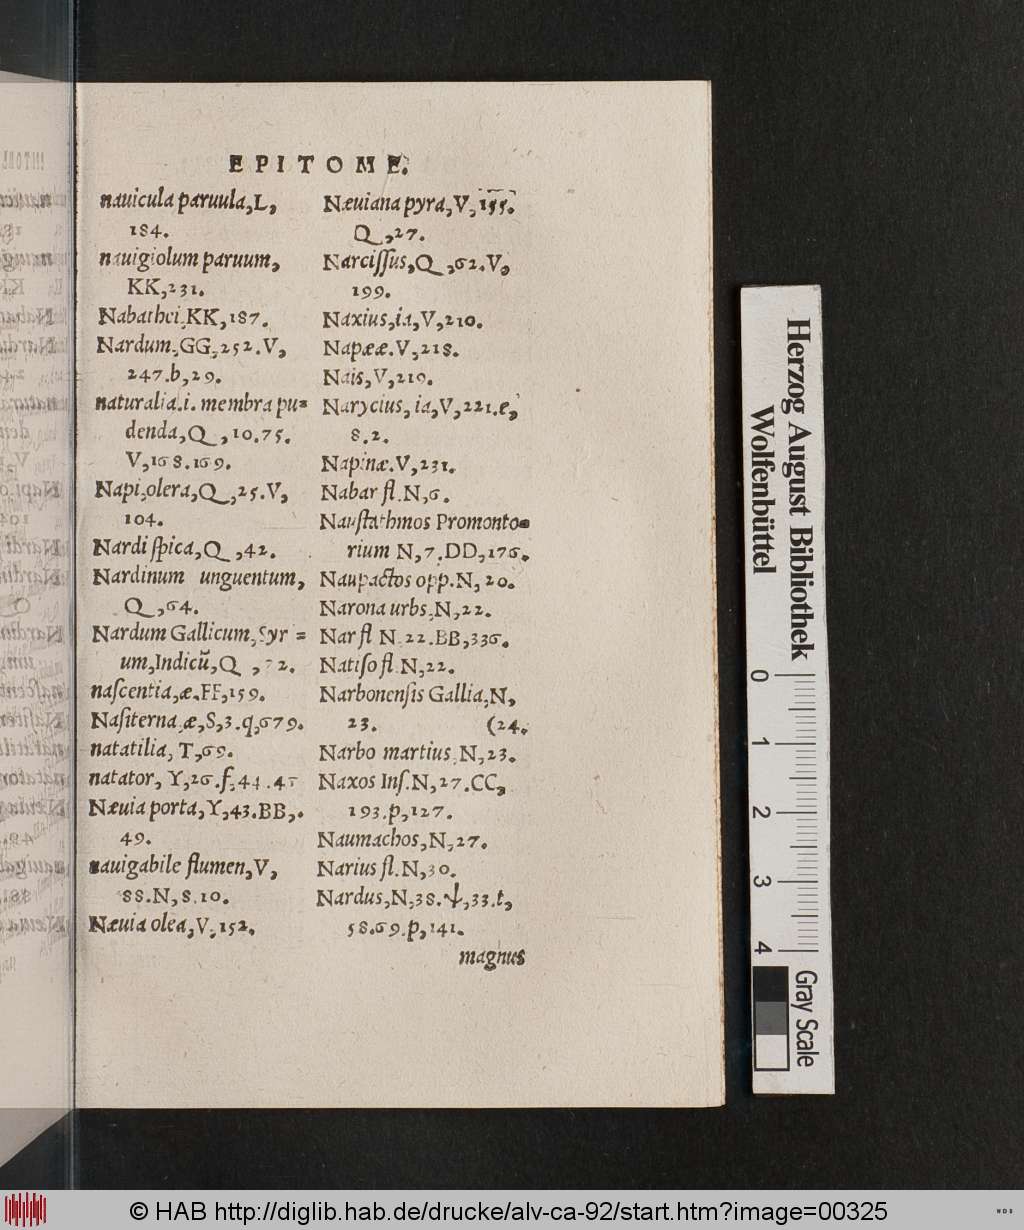 EPITOME.
nauicula paruula, L,
184.
nauigiolum paruum,
KK, 231.
Nabathei, KK, 187.
Nardum, GG, 252. V,
247. b, 29.
naturalia .i. membra pu=
denda, Q, 10. 75.
V, 168. 169.
Napi, olera, Q, 25. V,
104.
Nardi spica, Q, 42.
Nardinum unguentum,
Q, 64.
Nardum Gallicum, Syr=
um, Indicũ, Q, 72.
nascentia, æ. FF, 159.
Nasiterna, æ, S, 3. q, 679.
natatilia, T, 69.
natator, Y, 26. f, 44. 45
Næuia porta, Y, 43. BB,
49.
nauigabile flumen, V,
88. N, 8. 10.
Næuia olea, V, 152.
Næuiana pyra, V, 155.
Q, 27.
Narcissus, Q, 62. V,
199.
Naxius, ia, V, 210.
Napææ. V, 218.
Nais, V, 219.
Narycius, ia, V, 221. e,
8. 2.
Napinæ. V, 231.
Nabar fl. N, 6.
Naustathmos Promonto=
rium N, 7. DD, 176.
Naupactos opp. N, 20.
Narona urbs, N, 22.
Nar fl N. 22. BB, 336.
Natiso fl. N, 22.
Narbonensis Gallia, N,
23. (24.
Narbo martius, N, 23.
Naxos Inf. N, 27. CC,
193. p, 127.
Naumachos, N, 27.
Narius fl. N, 30.
Nardus, N, 38. ψ, 33. t,
58. 69. p, 141.
magnus
Herzog August Bibliothek
Wolfenbüttel
0 1 2 3 4
Gray Scale
© HAB http://diglib.hab.de/drucke/alv-ca-92/start.htm?image=00325